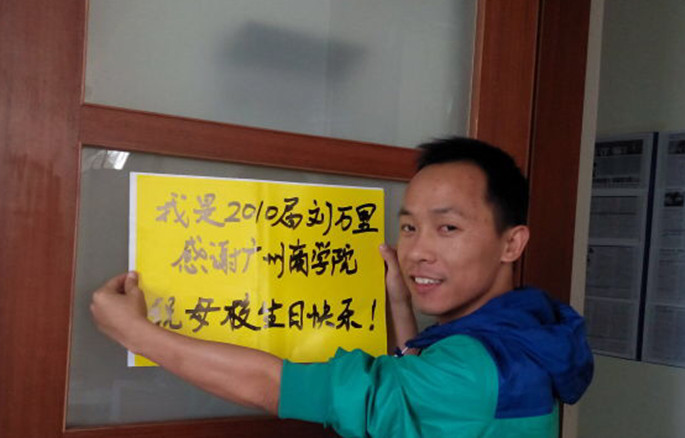 我是2010届刘万里
感谢广州商学院
祝母校生日快乐!